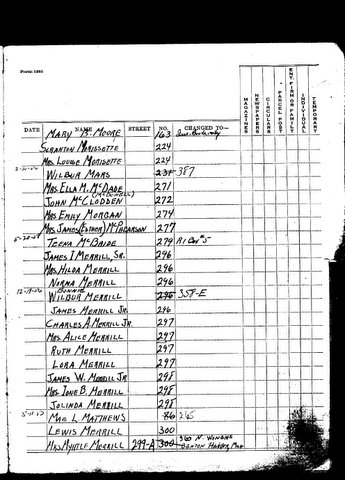 Form 1564
MAGAZINES
NEWSPAPERS
CIRCULARS
PARCEL POST
ENT. FIRM OR FAMILY
INDIVIDUAL
TEMPORARY
DATE NAME STREET NO. CHANGED TO—
MARY B. MOORE 163
SCRANTON MORISSETTE 224
MRS. LOUISE MORISETTE 224
WILBUR MARS 231 387
MRS. ELLA M. McDADE 271
JOHN McCLODDEN 272
MRS. EMILY MORGAN 274
MRS. JAMES (ESTHER) McPHEARSON 277
TEENA McBRIDE 279 R1 Box 5
JAMES I MERRILL, SR. 296
MRS. HILDA MERRILL 296
NORMA MERRILL 296
BONNIE
WILBUR MERRILL 296 358-E
JAMES MERRILL JR. 296
CHARLES A. MERRILL JR. 297
MRS. ALICE MERRILL 297
RUTH MERRILL 297
LORA MERRILL 297
JAMES W. MERRILL JR 298
MRS. IONE B. MERRILL 298
JOLINDA MERRILL 298
MAE L. MATTHEWS 86
LEWIS MERRILL 300
MRS MYRTLE MERRILL 299-A 300 360 N. WINANS
BENTON HARBOR, MICH